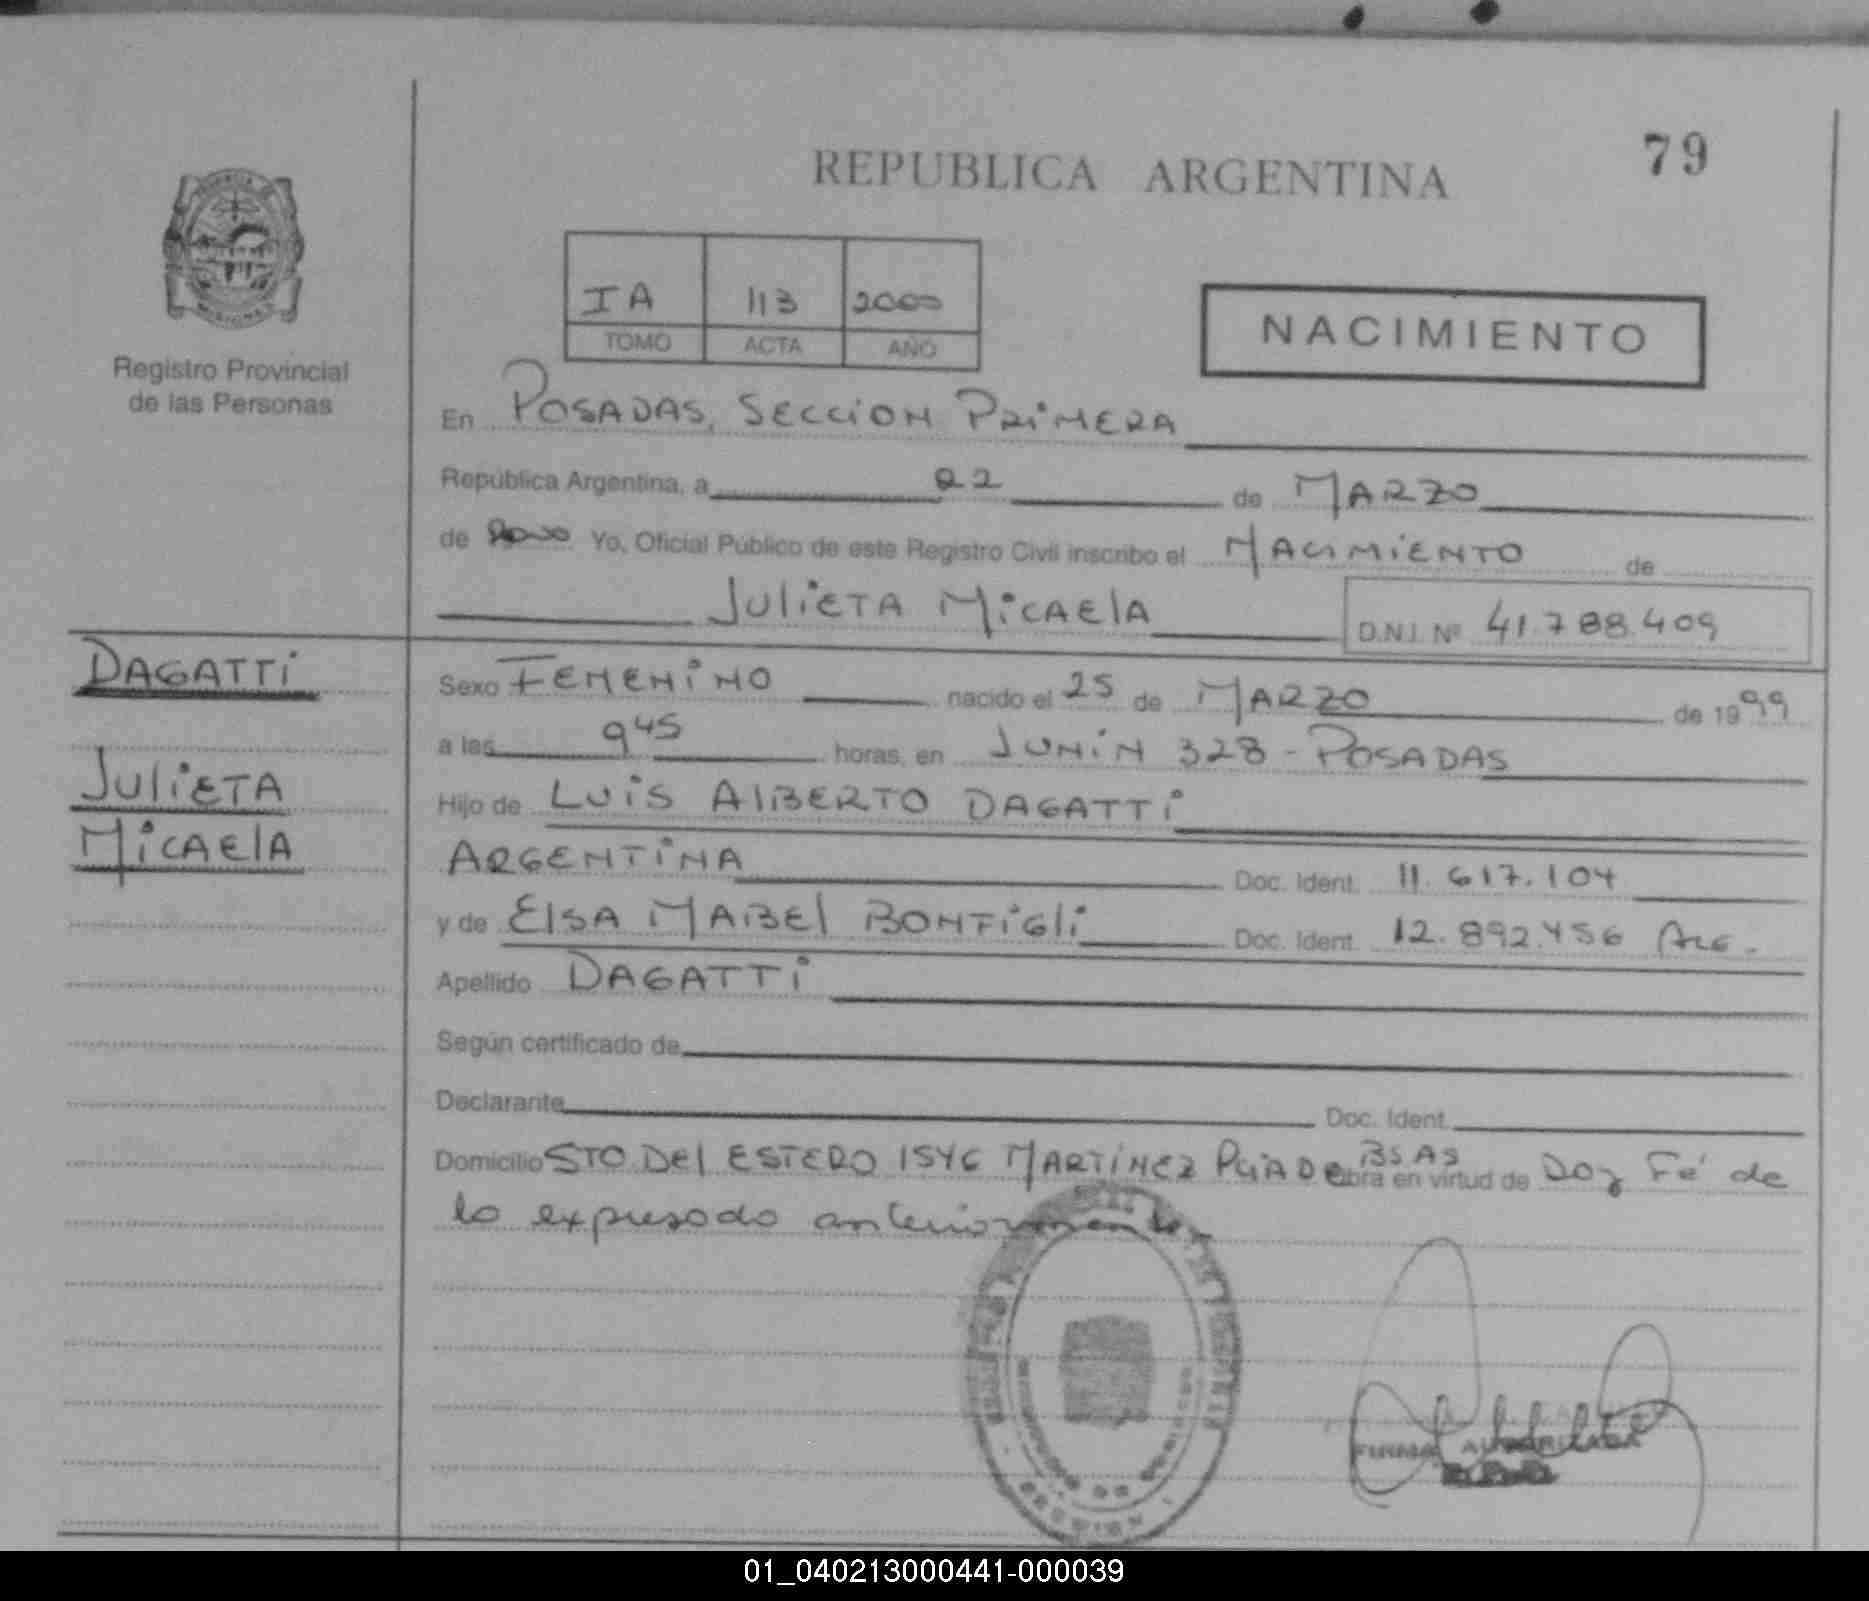 79
REPUBLICA ARGENTINA
IA 113 2000
TOMO ACTA AÑO
NACIMIENTO
Registro Provincial
de las Personas
En POSADAS, SECCION PRIMERA
República Argentina, a 22 de MARZO
de 2000 Yo, Oficial Público de este Registro Civil inscribo el NACIMIENTO de
JULIETA MICAELA D.N.I. Nº 41.788.409
DAGATTI
JULIETA
MICAELA
Sexo FEMENINO nacido el 25 de MARZO de 1999
a las 9 45 horas, en JUNIN 328 - POSADAS
Hijo de LUIS ALBERTO DAGATTI
ARGENTINA Doc. Ident. 11.617.104
y de ELSA MABEL BONFIGLI Doc. Ident. 12.892.456 ARG.
Apellido DAGATTI
Según certificado de
Declarante Doc. Ident.
Domicilio STO DEL ESTERO 1546 MARTÍNEZ PCIA DE BS AS obra en virtud de Doy Fé de
lo expresado anteriormente
FIRMA AUTORIZADA
01_040213000441-000039